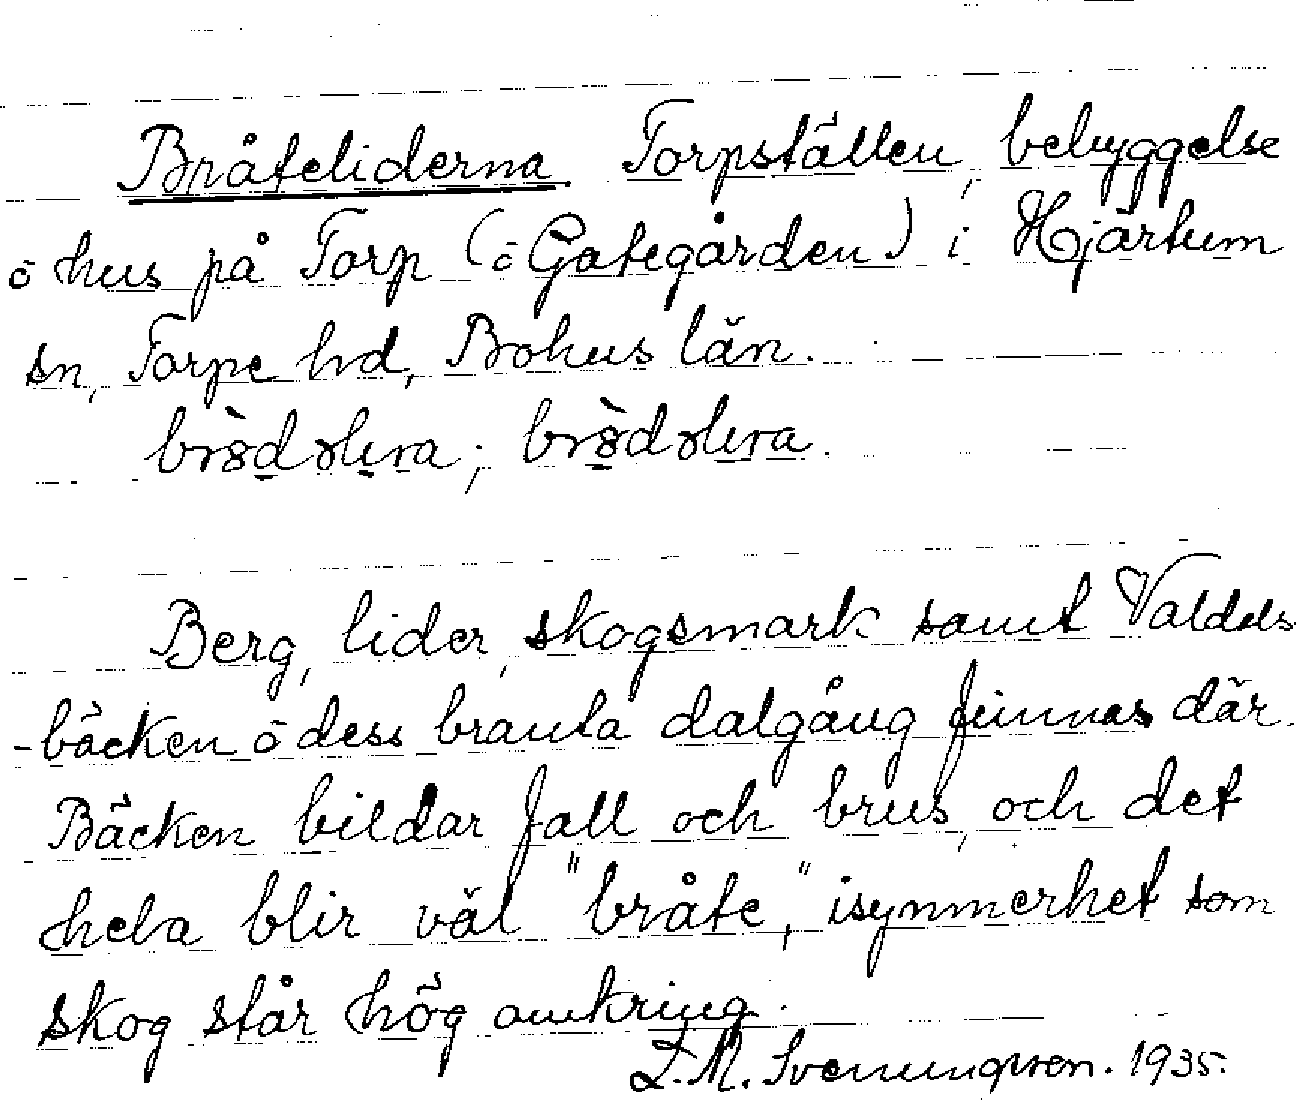 Bråteliderna. Torpställen, bebyggelse
ō hus på Torp (ō Gategården) i Hjärtum
sn, Torpe hd, Bohus län.
Berg, lider, skogsmark samt Valdals
-bäcken ō dess branta dalgång finnas där.
Bäcken bildar fall och brus, och det
hela blir väl "bråte", isynnerhet som
skog står hög omkring.
L.M. Svenungsson. 1935.